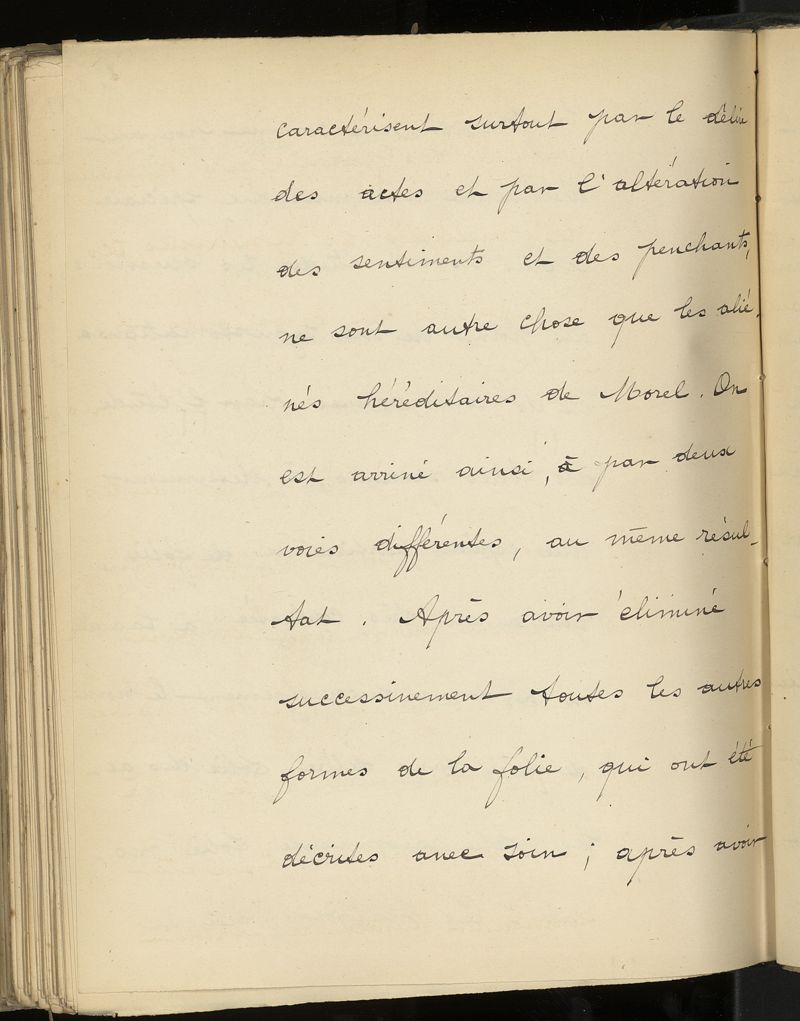 caractérisent surtout par le délire
des actes et par l'altération
des sentiments et des penchants,
ne sont autre chose que les alié-
nés héréditaires de Morel. On
est arrivé ainsi, à par deux
voies différentes, au même résul-
tat. Après avoir éliminé
successivement toutes les autres
formes de la folie, qui ont été
décrites avec soin ; après avoir